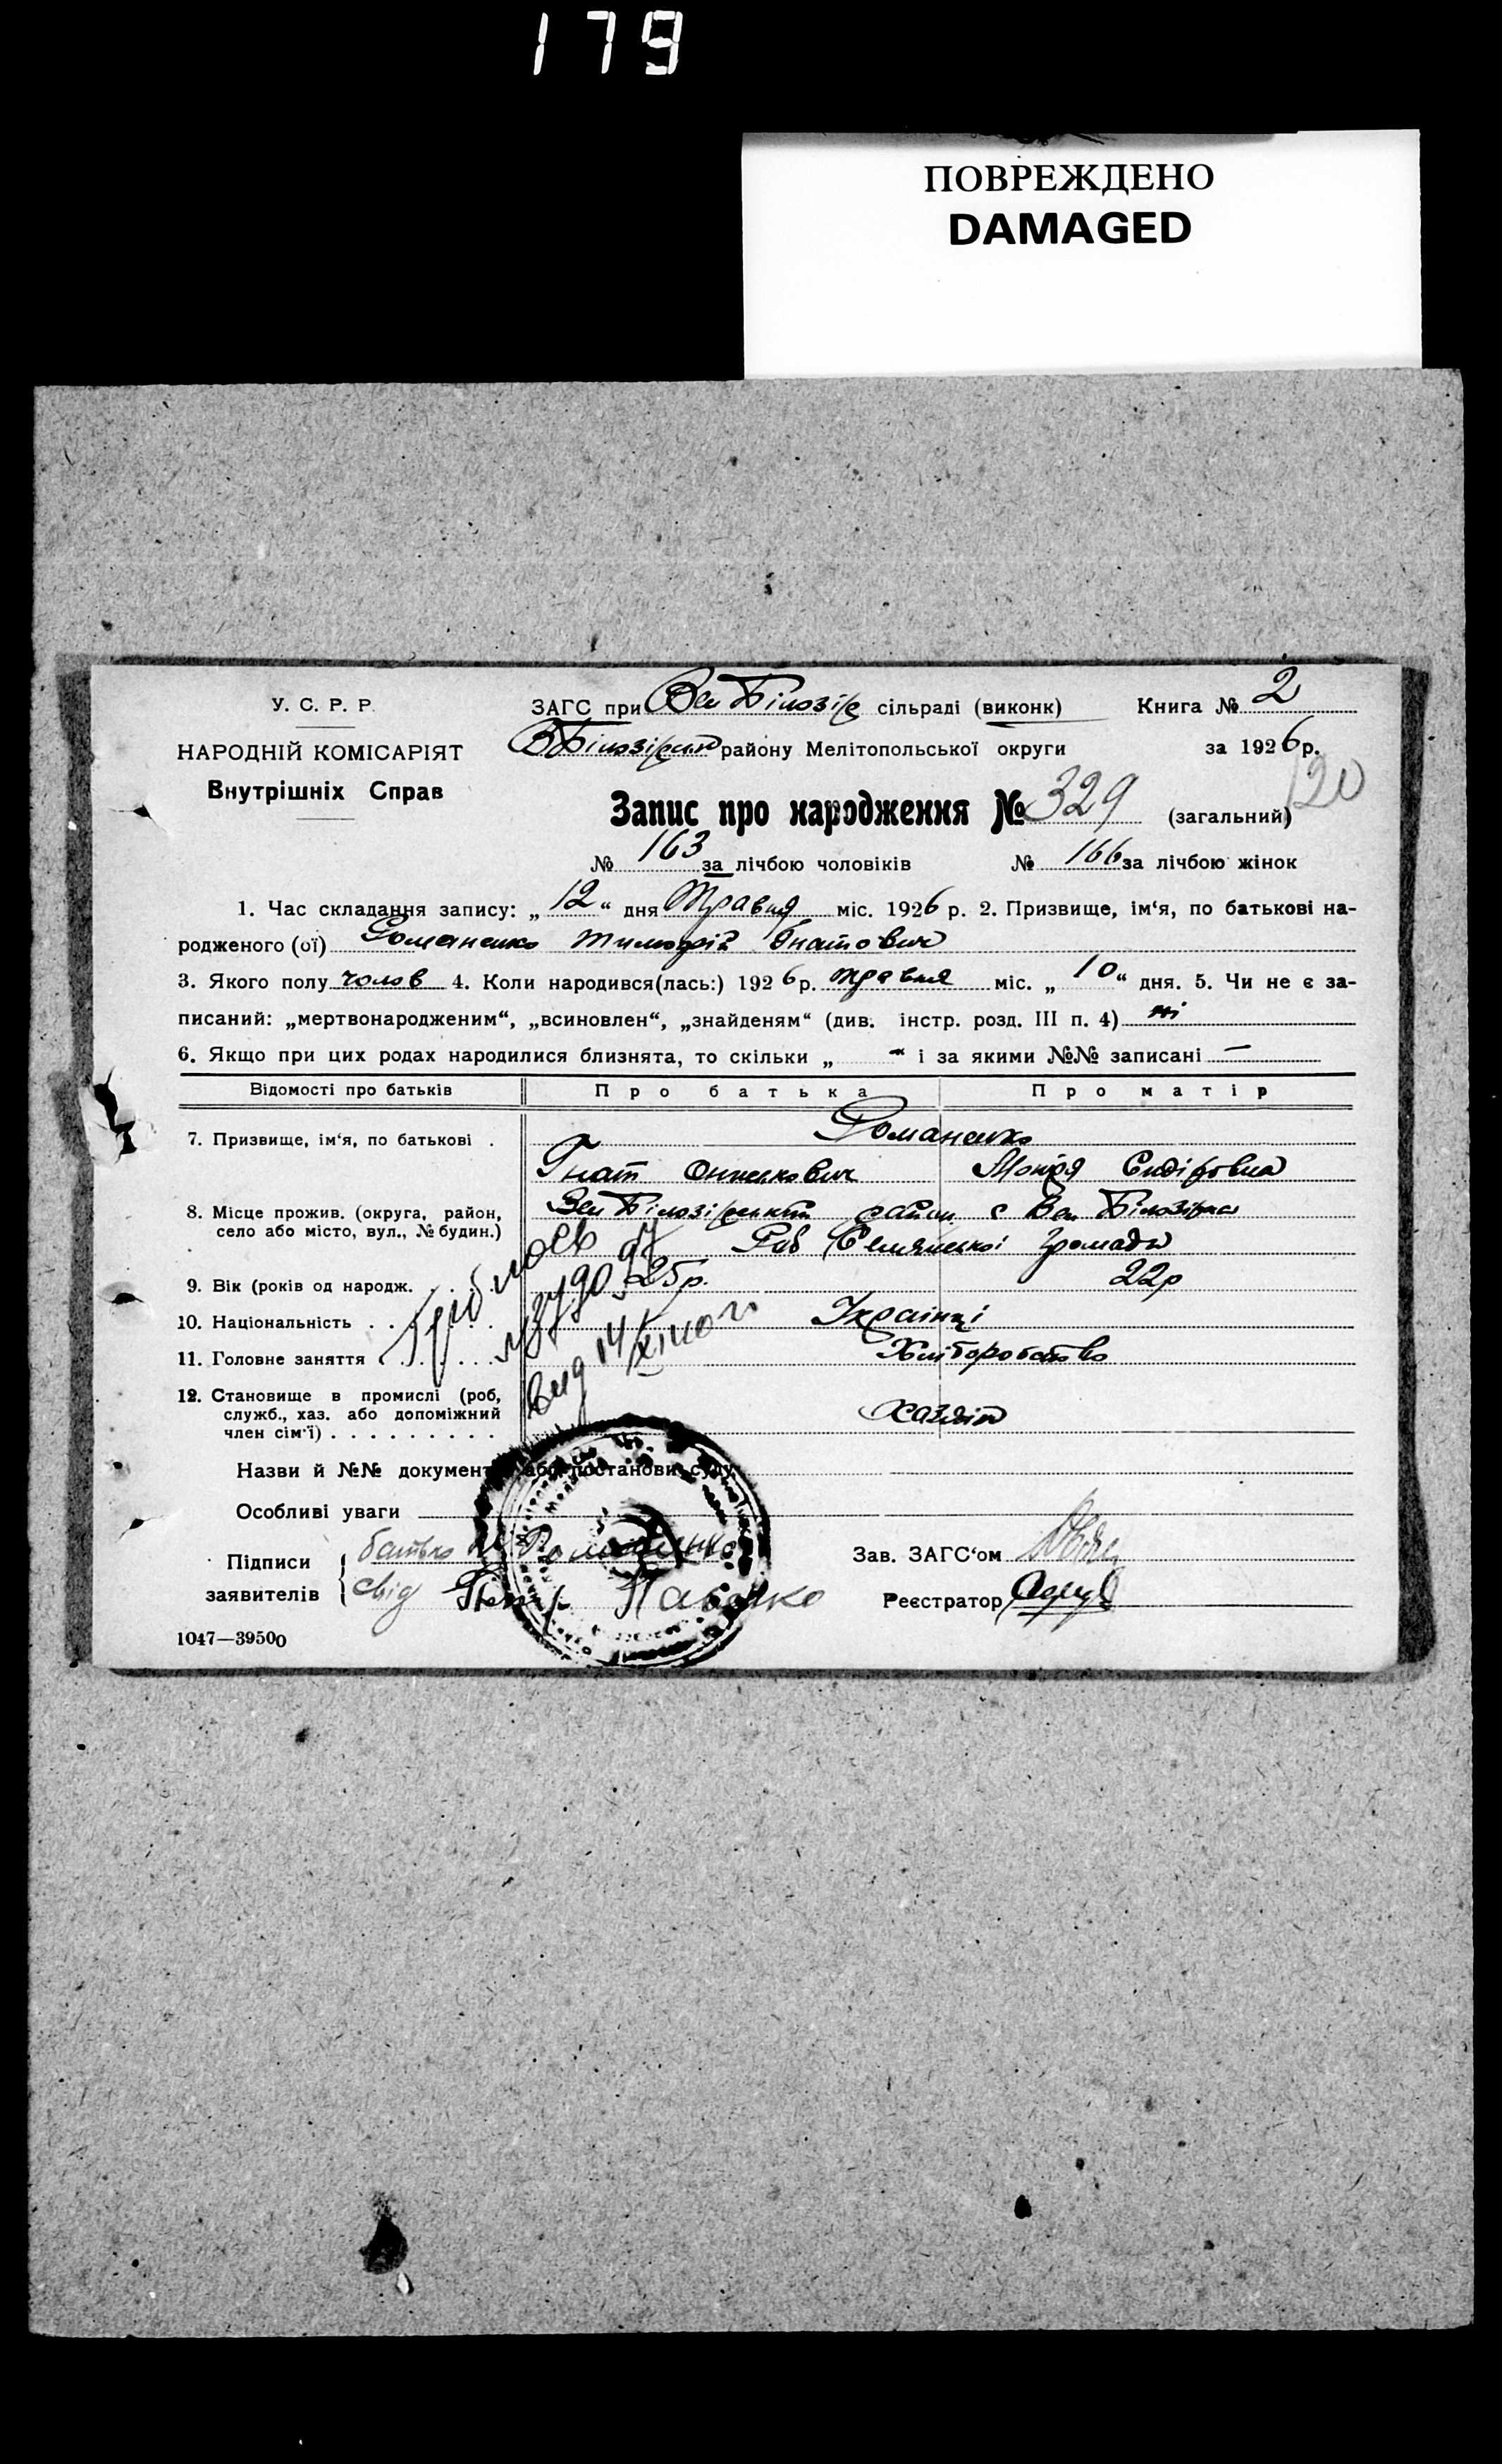 179
ПОВРЕЖДЕНО
DAMAGED
У. С. Р. Р.
НАРОДНІЙ КОМІСАРІЯТ
Внутрішніх Справ
ЗАГС при Вел Білозір сільраді (виконк) Книга № 2
ВБілозірськ району Мелітопольської округи за 1926 р.
120
Запис про народження № 329 (загальний)
№ 163 за лічбою чоловіків № 166 за лічбою жінок
1. Час складання запису: „12“ дня Травня міс. 1926 р. 2. Призвище, ім‘я, по батькові на-
родженого (ої) Романенко Тимофій Гнатович
3. Якого полу чолов 4. Коли народився(лась:) 1926 р. травня міс. „10“ дня. 5. Чи не є за-
писаний: „мертвонародженим“, „всиновлен“, „знайденям“ (див. інстр. розд. III п. 4) ні
6. Якщо при цих родах народилися близнята, то скільки „ – “ і за якими №№ записані —
Відомості про батьків Про батька Про матір
7. Призвище, ім‘я, по батькові . Романенко
Гнат Сидіровна
8. Місце прожив. (округа, район, Вел Білозірський район с Вел Білозірка
село або місто, вул., № будин.) Громади
9. Вік (років од народж. 25р. 22р
10. Національність . . . . . . . Українці
11. Головне заняття . . . . . . . Хліборобство
12. Становище в промислі (роб, хазяїн
служб., хаз. або допоміжний
член сім‘ї) . . . . . . . . .
Назви й №№ документ або постанови суду
Особливі уваги
Підписи
заявителів
батько Романенко
свід Петр
Зав. ЗАГС‘ом
Реєстратор
1047—39500